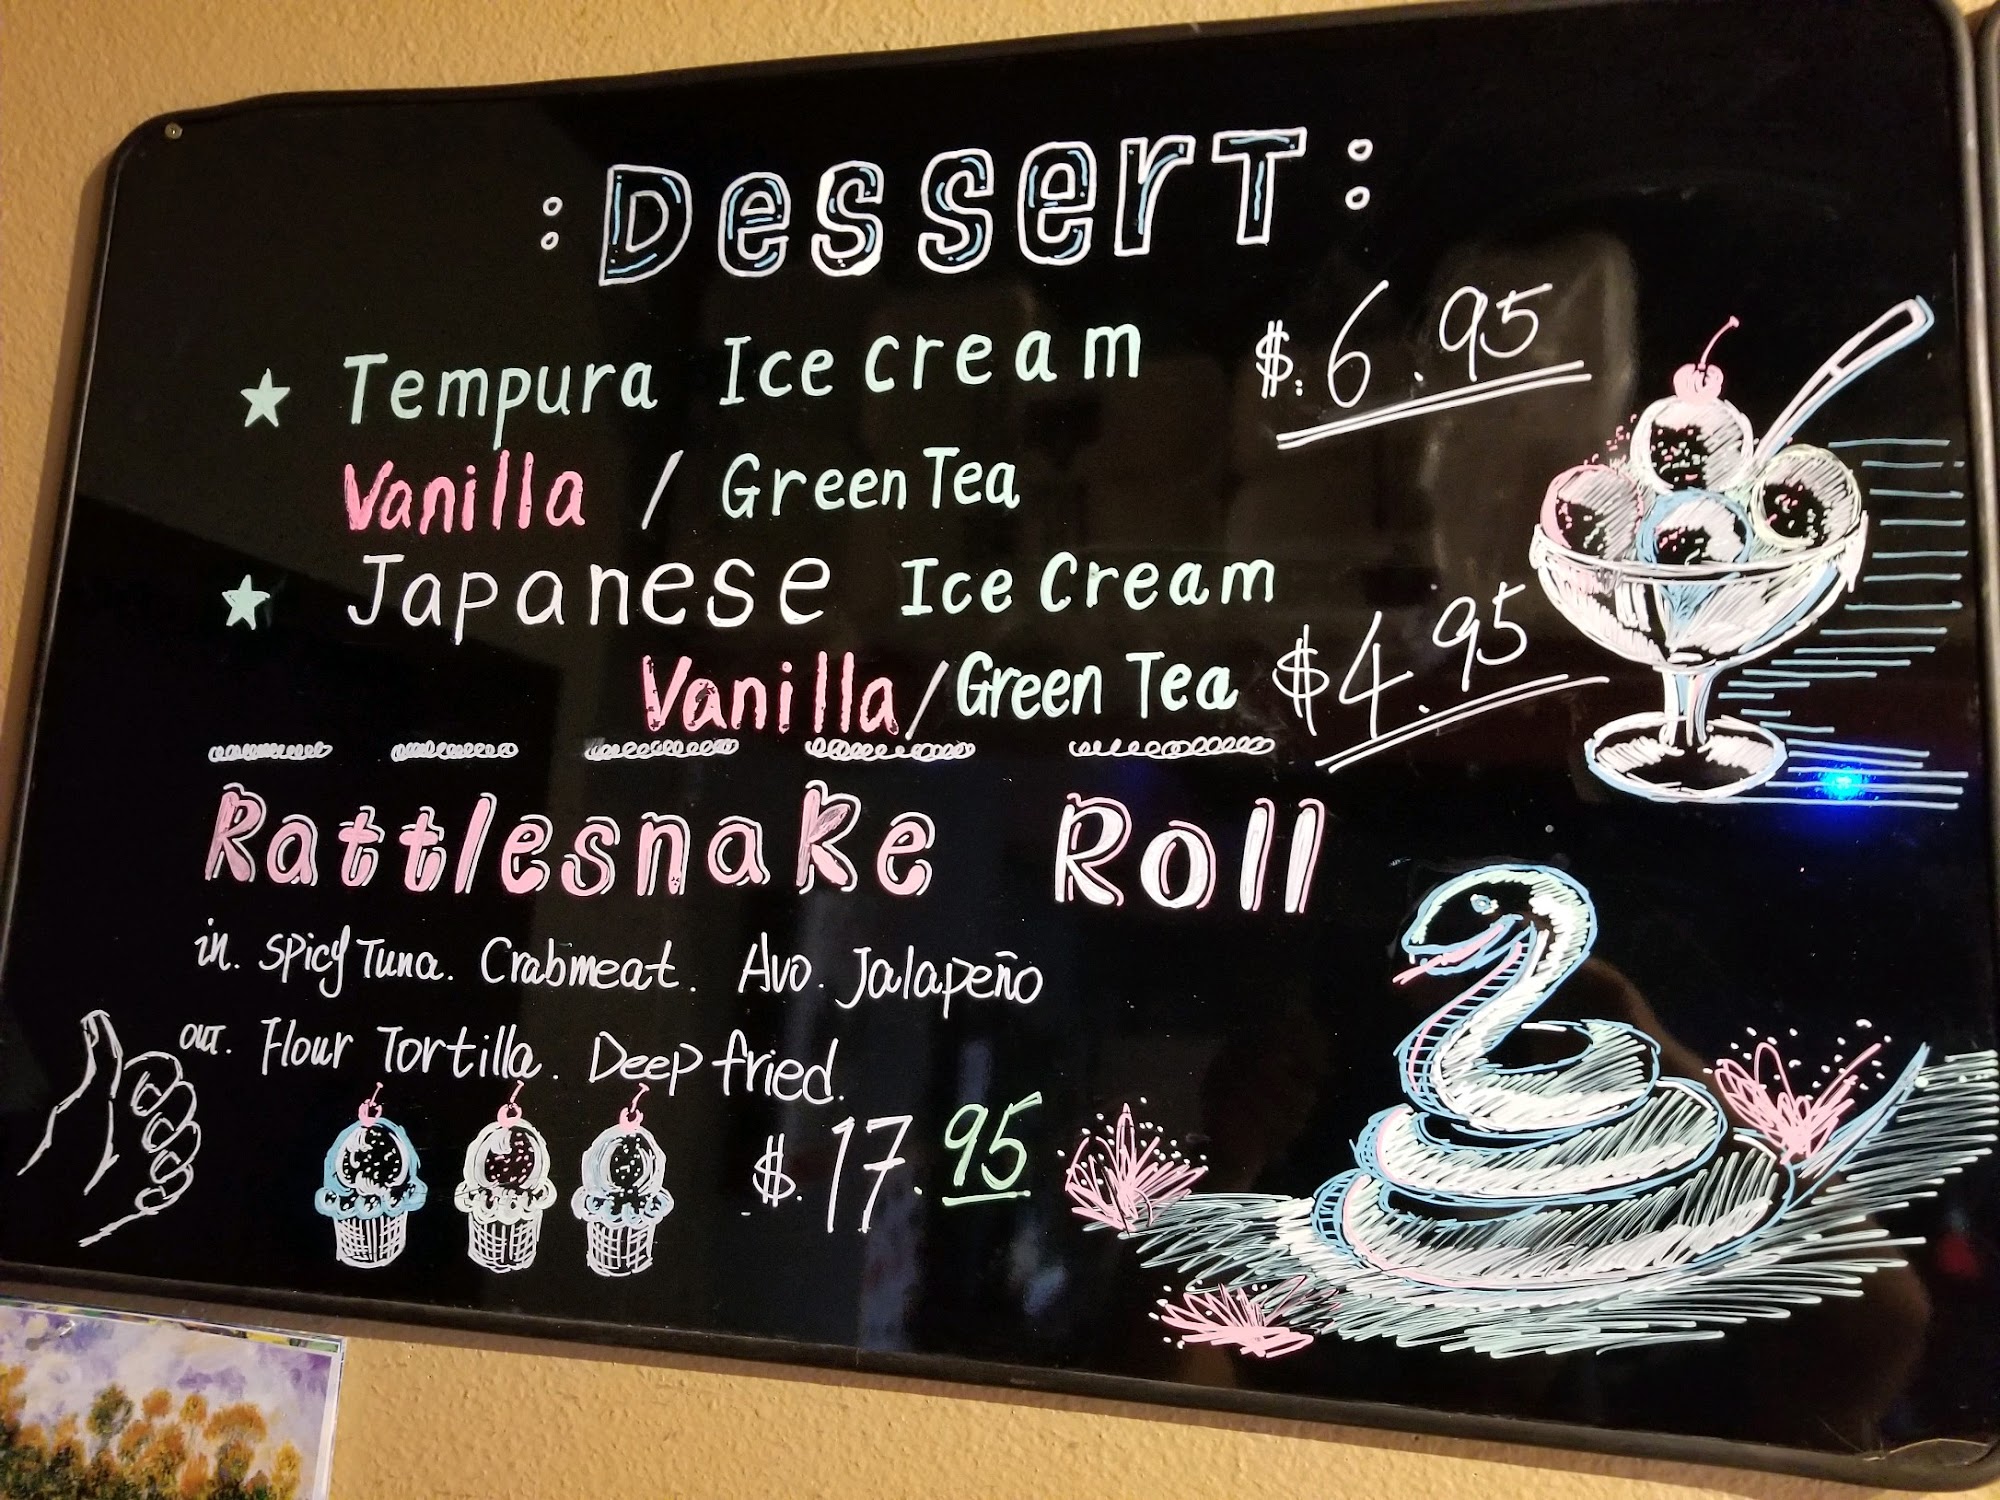 : Dessert :
★ Tempura Ice cream $.6.95
Vanilla / Green Tea
★ Japanese Ice Cream
Vanilla/Green Tea $4.95
Rattlesnake Roll
in. Spicy Tuna. Crabmeat. Avo. Jalapeño
out. Flour Tortilla. Deep fried.
$.17.95